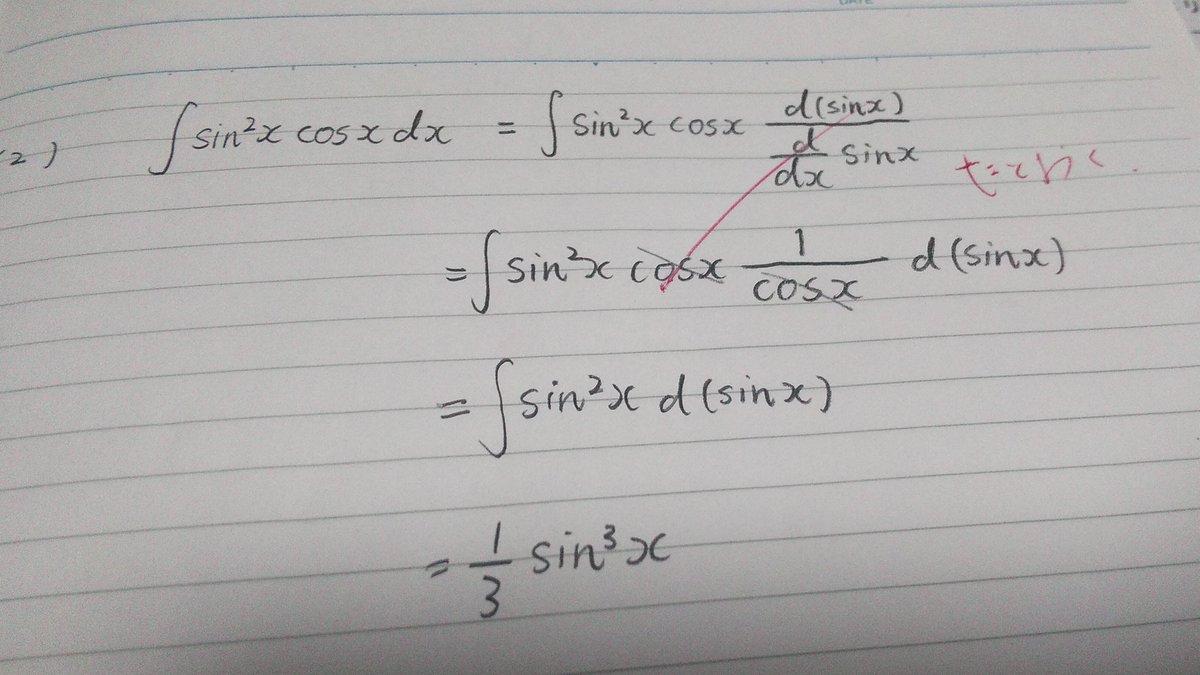 (2) ∫ sin²x cosx dx = ∫ sin²x cosx d(sinx) / (d/dx sinx)
= ∫ sin²x cosx 1/cosx d(sinx)
= ∫ sin²x d(sinx)
= 1/3 sin³x